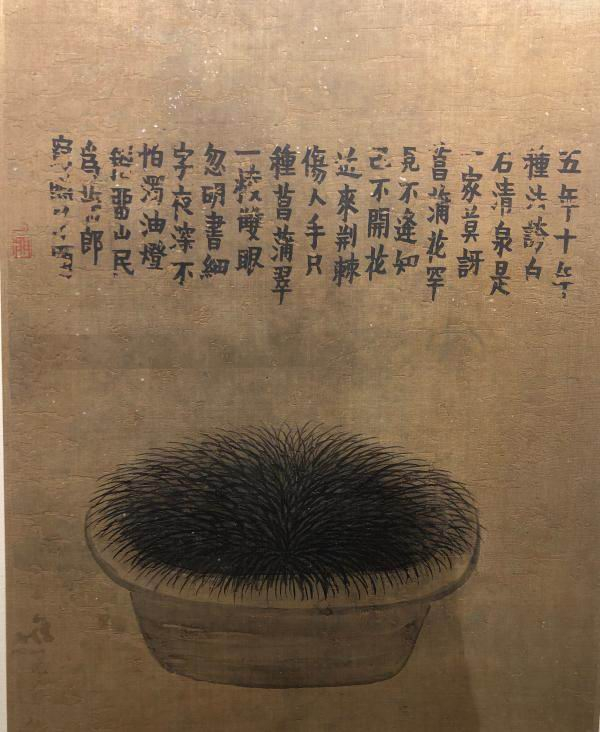 五年十年
種法誇白
石清泉是
一家莫訝
菖蒲花罕
見不逢知
己不開花
近來荆棘
傷人手只
種菖蒲翠
一稜雙眼
忽明書細
字夜深不
怕濁油燈
留山民
郎